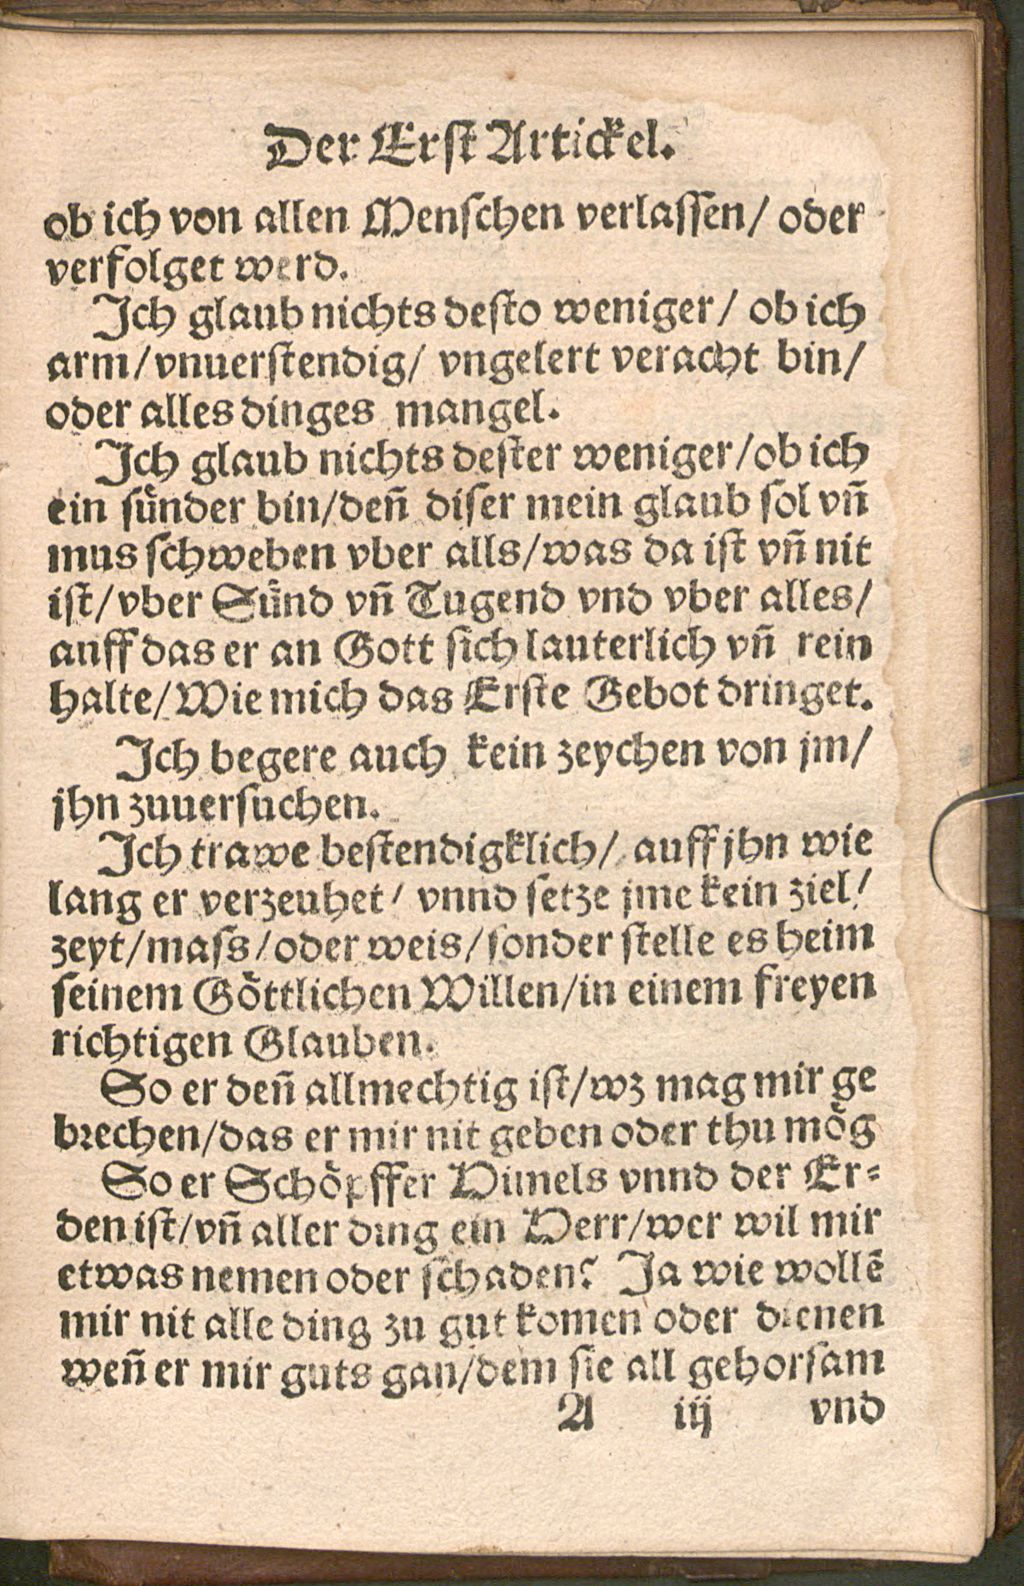 Der Erst Artickel.
ob ich von allen Menschen verlassen/ oder
verfolget werd.
Ich glaub nichts desto weniger/ ob ich
arm/vnuerstendig/ vngelert veracht bin/
oder alles dinges mangel.
Ich glaub nichts dester weniger/ob ich
ein sünder bin/deñ diser mein glaub sol vñ
mus schweben vber alls/was da ist vñ nit
ist/vber Sünd vñ Tugend vnd vber alles/
auff das er an Gott sich lauterlich vñ rein
halte/Wie mich das Erste Gebot dringet.
Ich begere auch kein zeychen von jm/
jhn zuuersuchen.
Ich trawe bestendigklich/ auff jhn wie
lang er verzeuhet/ vnnd setze jme kein ziel/
zeyt/mass/oder weis/sonder stelle es heim
seinem Göttlichen Willen/in einem freyen
richtigen Glauben.
So er deñ allmechtig ist/wz mag mir ge
brechen/das er mir nit geben oder thu mög
So er Schöpffer Himels vnnd der Er-
den ist/vñ aller ding ein Herr/wer wil mir
etwas nemen oder schaden? Ja wie wollē
mir nit alle ding zu gut komen oder dienen
weñ er mir guts gan/dem sie all gehorsam
A iij vnd